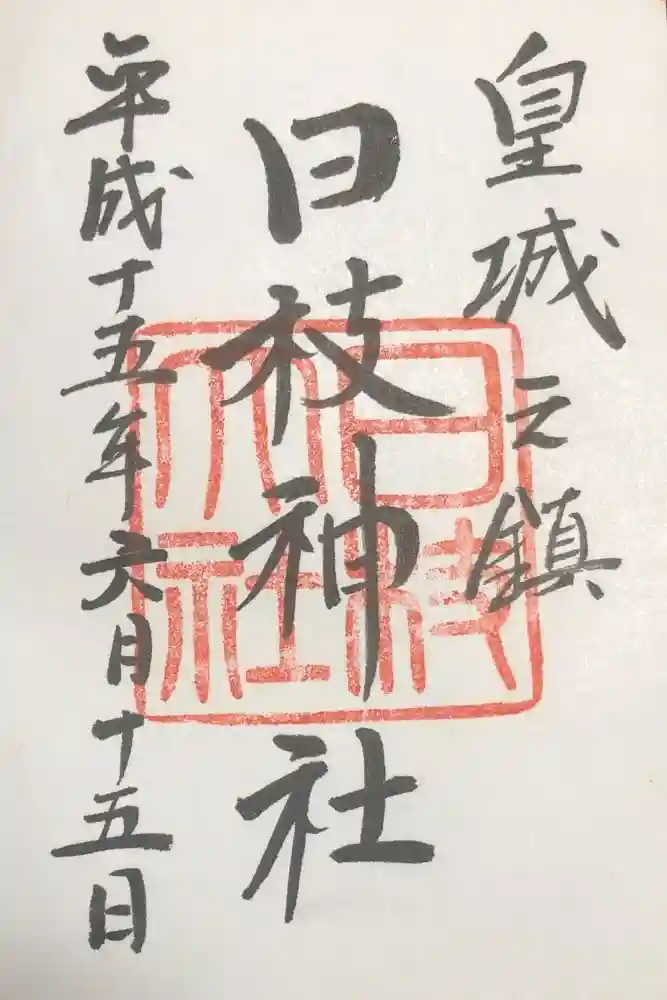 皇城之鎮
日枝神社
平成十五年六月十五日
日枝
大社